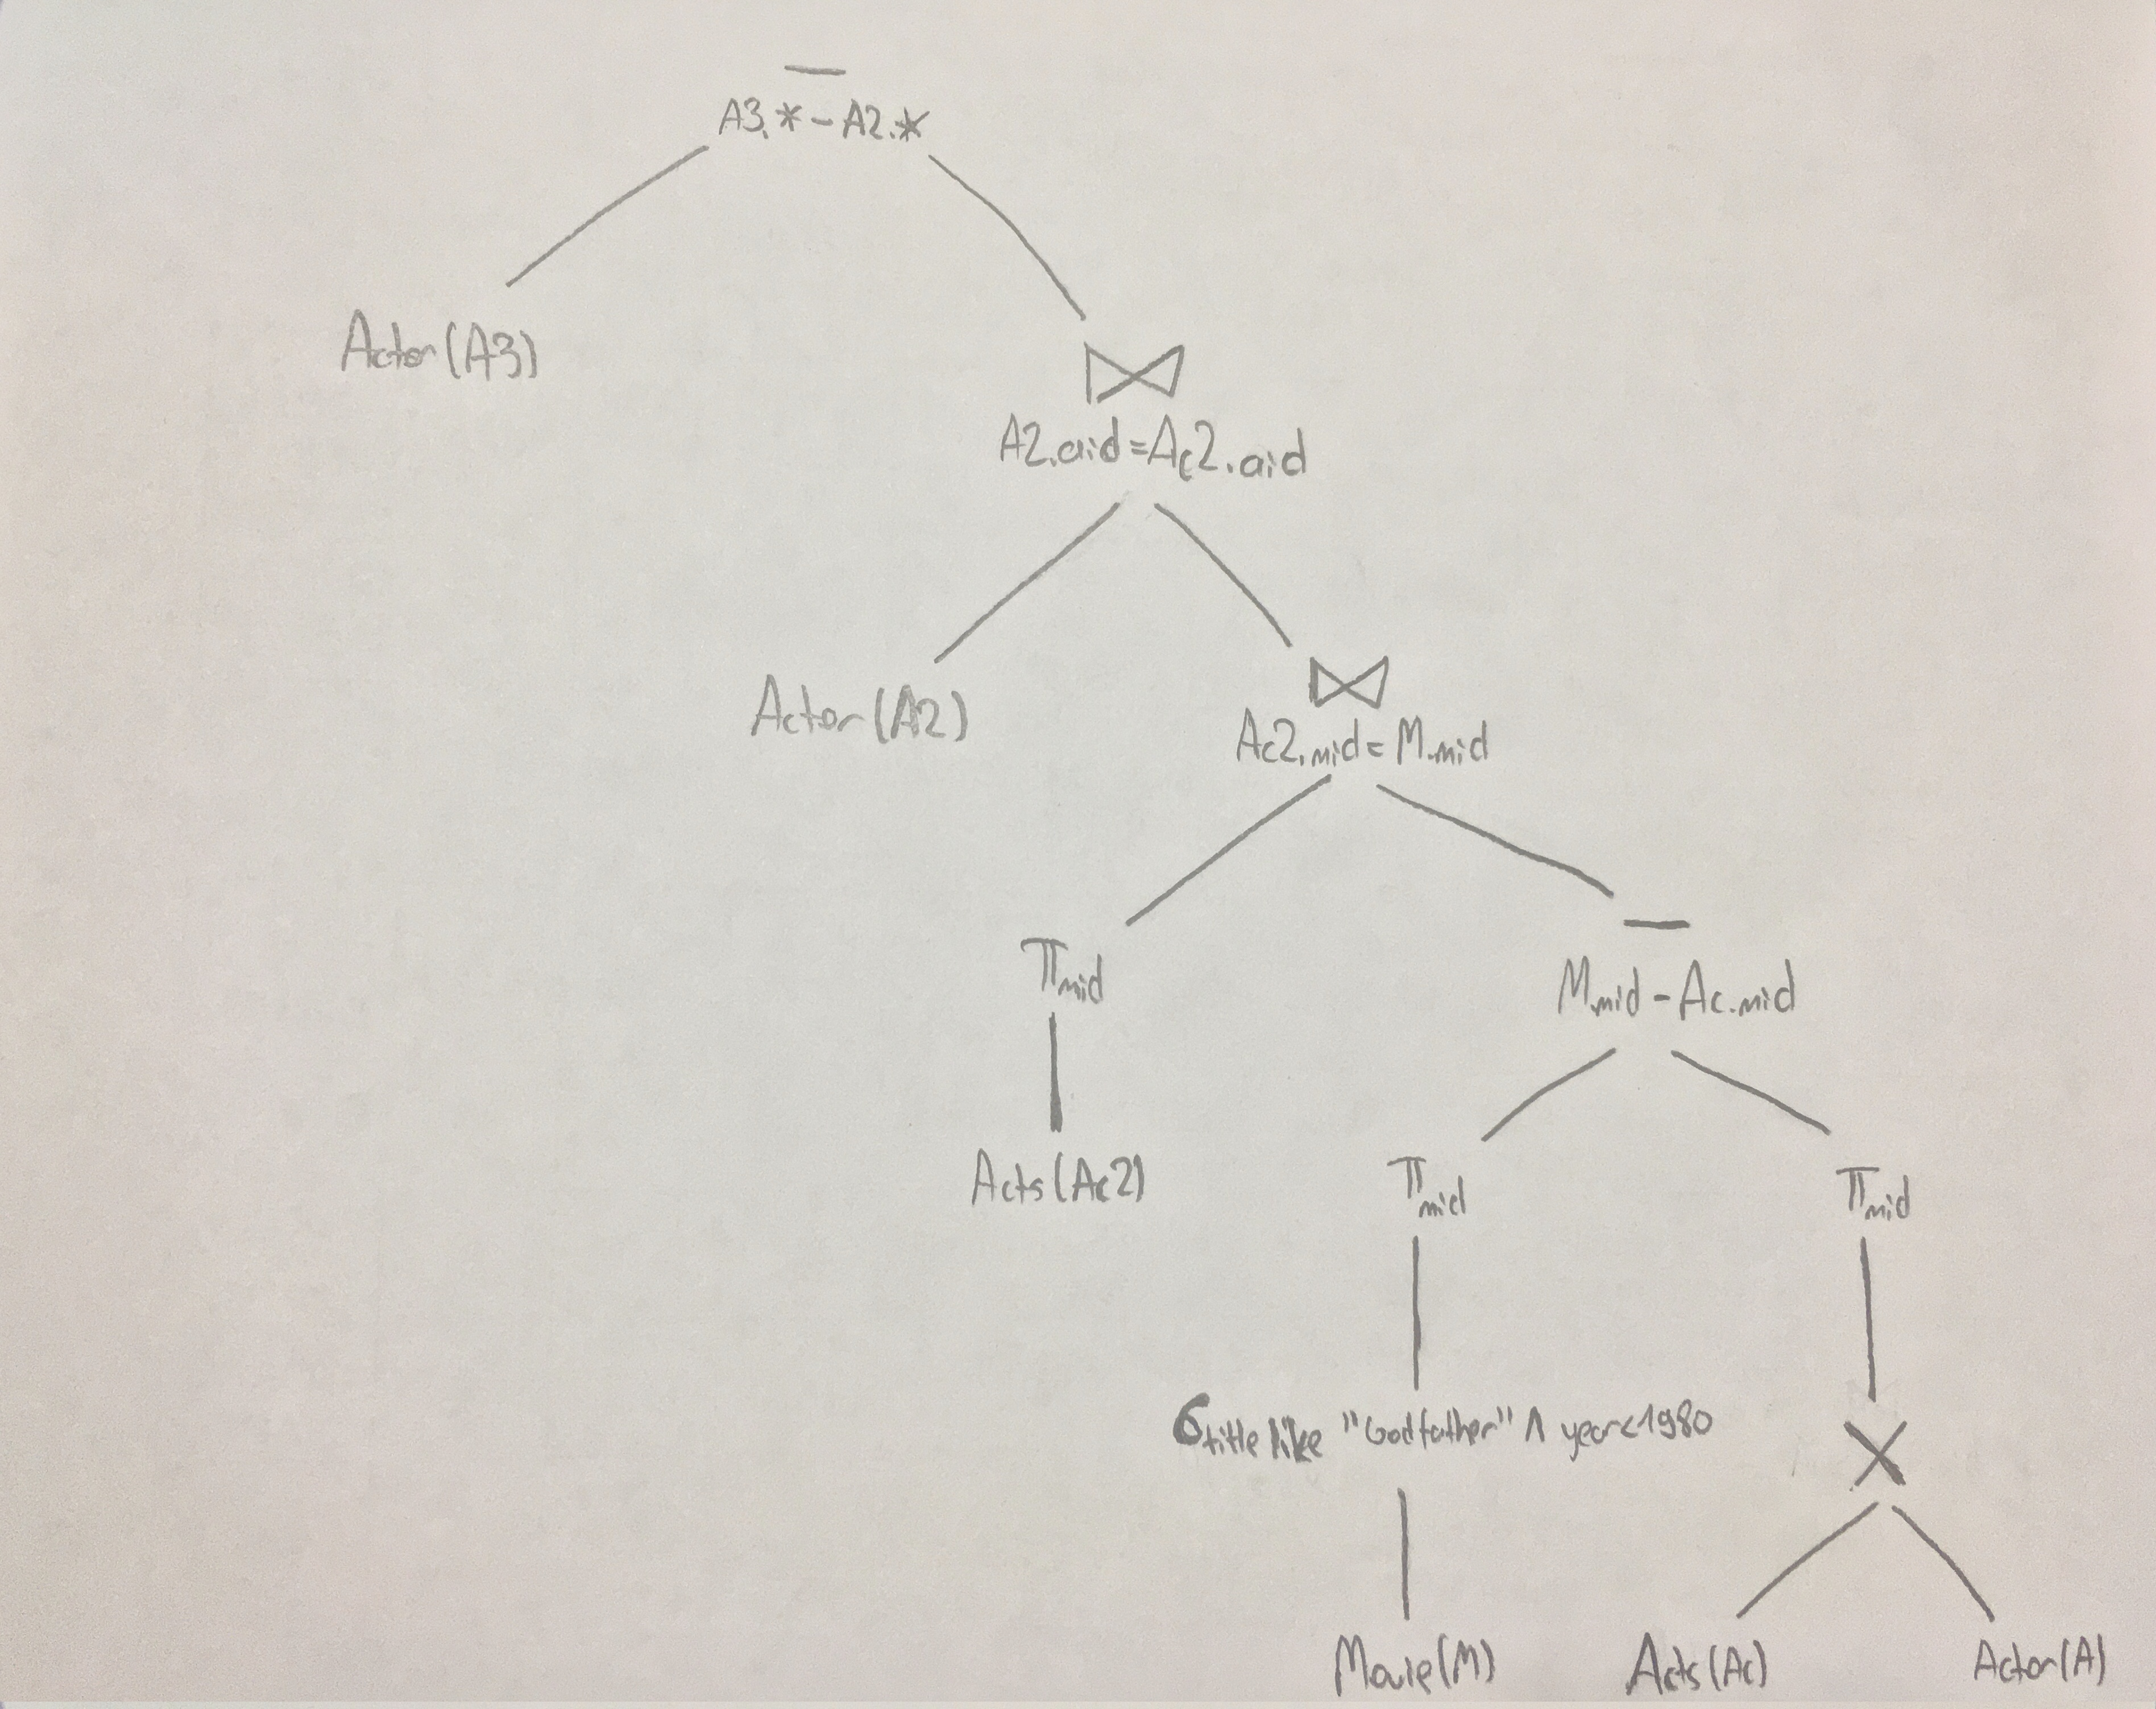 —
A3.*-A2.*
Actor(A3)
⋈
A2.aid=Ac2.aid
Actor(A2)
⋈
Ac2.mid=M.mid
πmid
—
M.mid-Ac.mid
Acts(Ac2)
πmid
πmid
σtitle like "Godfather" ∧ year<1980
×
Movie(M)
Acts(Ac)
Actor(A)